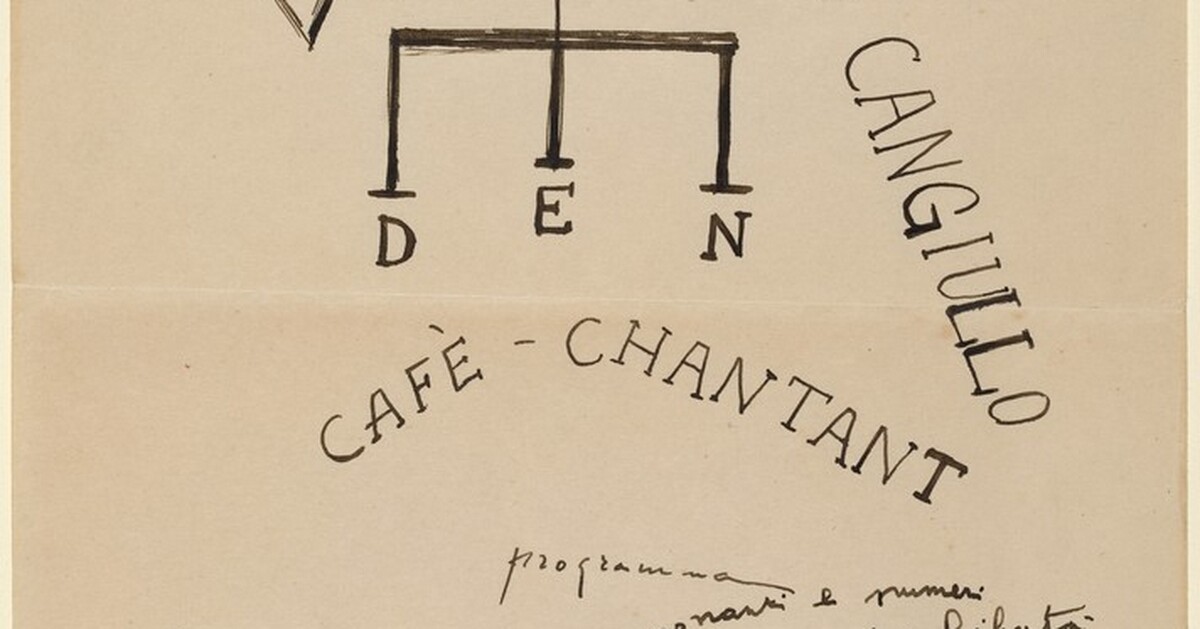 D E N
CANGIULLO
CAFÈ - CHANTANT
programma
e numeri